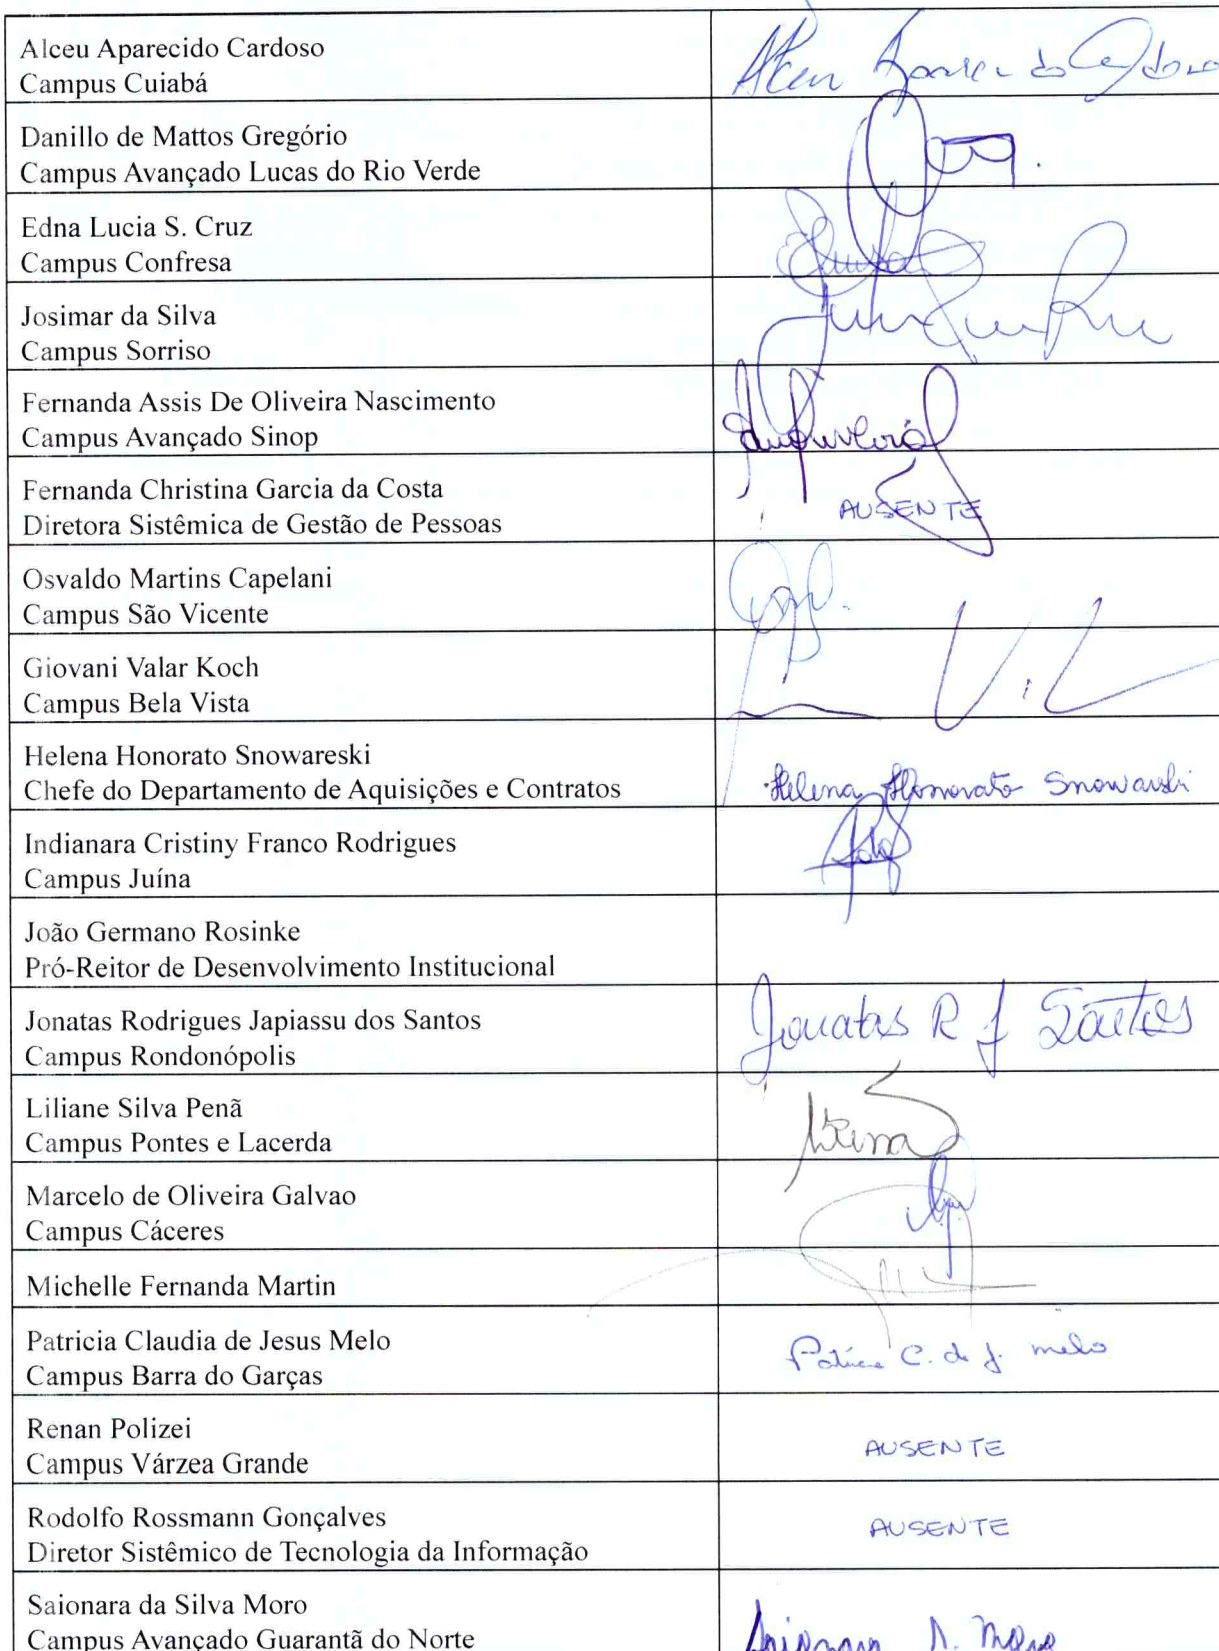 Alceu Aparecido Cardoso
Campus Cuiabá
Danillo de Mattos Gregório
Campus Avançado Lucas do Rio Verde
Edna Lucia S. Cruz
Campus Confresa
Josimar da Silva
Campus Sorriso
Fernanda Assis De Oliveira Nascimento
Campus Avançado Sinop
Fernanda Christina Garcia da Costa
AUSENTE
Diretora Sistêmica de Gestão de Pessoas
Osvaldo Martins Capelani
Campus São Vicente
Giovani Valar Koch
Campus Bela Vista
Helena Honorato Snowareski
Chefe do Departamento de Aquisições e Contratos
Helena Honorato Snowareski
Indianara Cristiny Franco Rodrigues
Campus Juína
João Germano Rosinke
Pró-Reitor de Desenvolvimento Institucional
Jonatas Rodrigues Japiassu dos Santos
Campus Rondonópolis
Jonatas R J Santos
Liliane Silva Penã
Campus Pontes e Lacerda
Marcelo de Oliveira Galvao
Campus Cáceres
Michelle Fernanda Martin
Patricia Claudia de Jesus Melo
Campus Barra do Garças
Patricia C. de J. melo
Renan Polizei
Campus Várzea Grande
AUSENTE
Rodolfo Rossmann Gonçalves
Diretor Sistêmico de Tecnologia da Informação
AUSENTE
Saionara da Silva Moro
Campus Avançado Guarantã do Norte
Saionara S. Moro